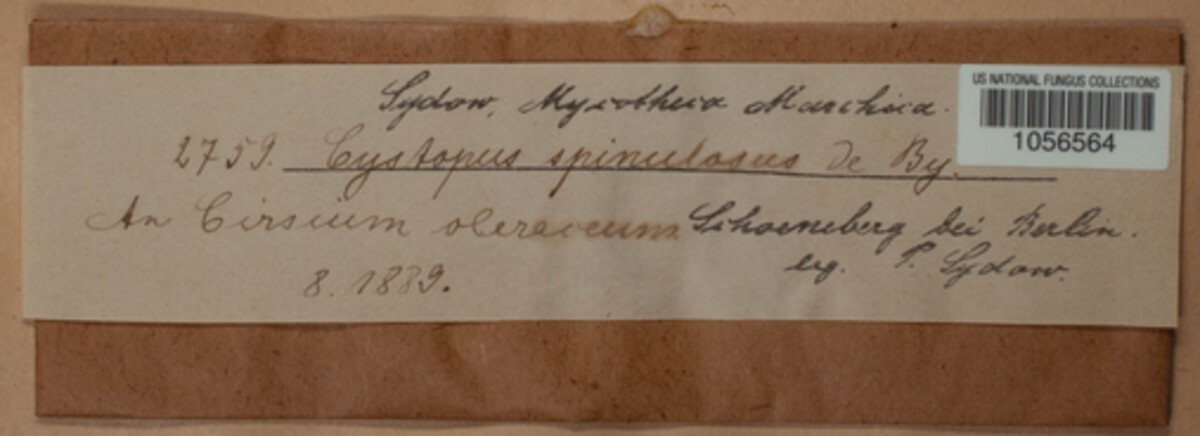 Sydow, Mycotheca Marchica.
US NATIONAL FUNGUS COLLECTIONS
1056564
2759. Cystopus spinulosus De By.
An Cirsium oleraceum Schoeneberg bei Berlin.
8. 1889.
leg. P. Sydow.